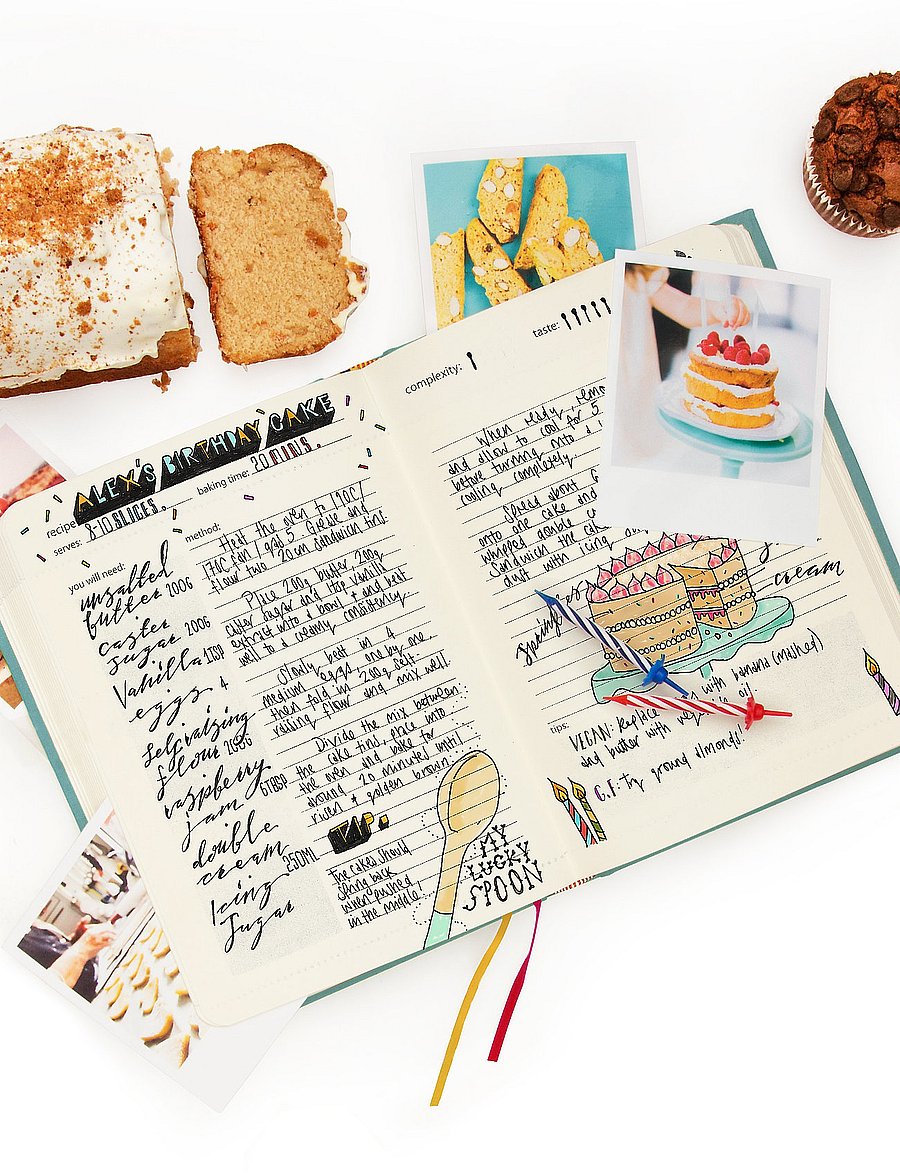 ALEX'S BIRTHDAY CAKE
recipe
serves: 8-10 SLICES.
baking time: 20 MINS.
you will need:
unsalted
butter 200G
caster
sugar 200G
Vanilla 1TSP
eggs. 4
Self-raising
flour 200G
raspberry
jam 6TBSP
double
cream
250ML
Icing
Sugar
method:
Heat the oven to 190C/
170C fan / gas 5. Grease and
flour two 20cm sandwich tins.
Place 200g butter, 200g
caster sugar and the vanilla
extract into a bowl & and beat
well to a creamy consistency.
Slowly beat in 4
medium eggs, one by one,
then fold in 200g self-
raising flour and mix well.
Divide the mix between
the cake tins, place into
the oven and bake for
around 20 minutes until
risen & golden brown.
TIP.
The cakes should
spring back
when pushed
in the middle!
MY
LUCKY
SPOON
complexity:
taste:
When ready, remo
and allow to cool for 5
before turning onto a
cooling completely.
Spread about 6
onto one cake and
whipped double c
Sandwich the ca
dust with icing
cream
tips:
VEGAN: Replace with banana (mashed)
and butter with oil
G.F: Try ground almonds!